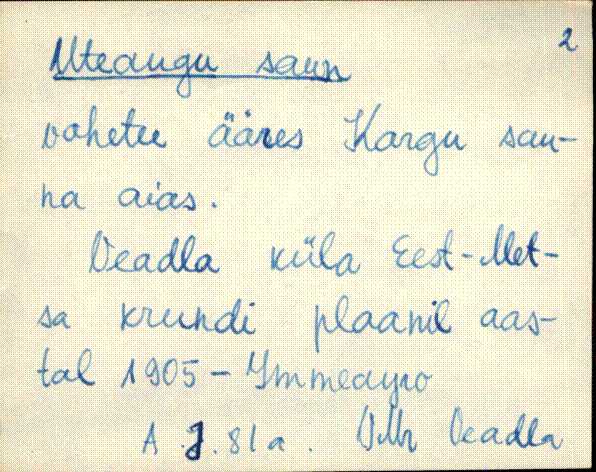 2
Uteaugu saun
vahetee ääres Kargu sau-
na aias.
Veadla küla Eest-Met-
sa krundi plaanil aas-
tal 1905 -
A. J. 81a. VMr Veadla